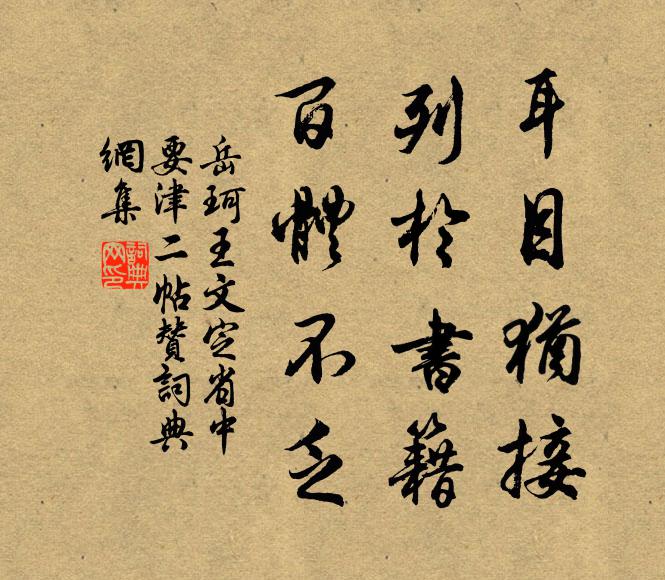 耳目猶接
列於書籍
百體不乏
岳珂王文定省中
要津二帖贊詞典
網集
詞典
网印